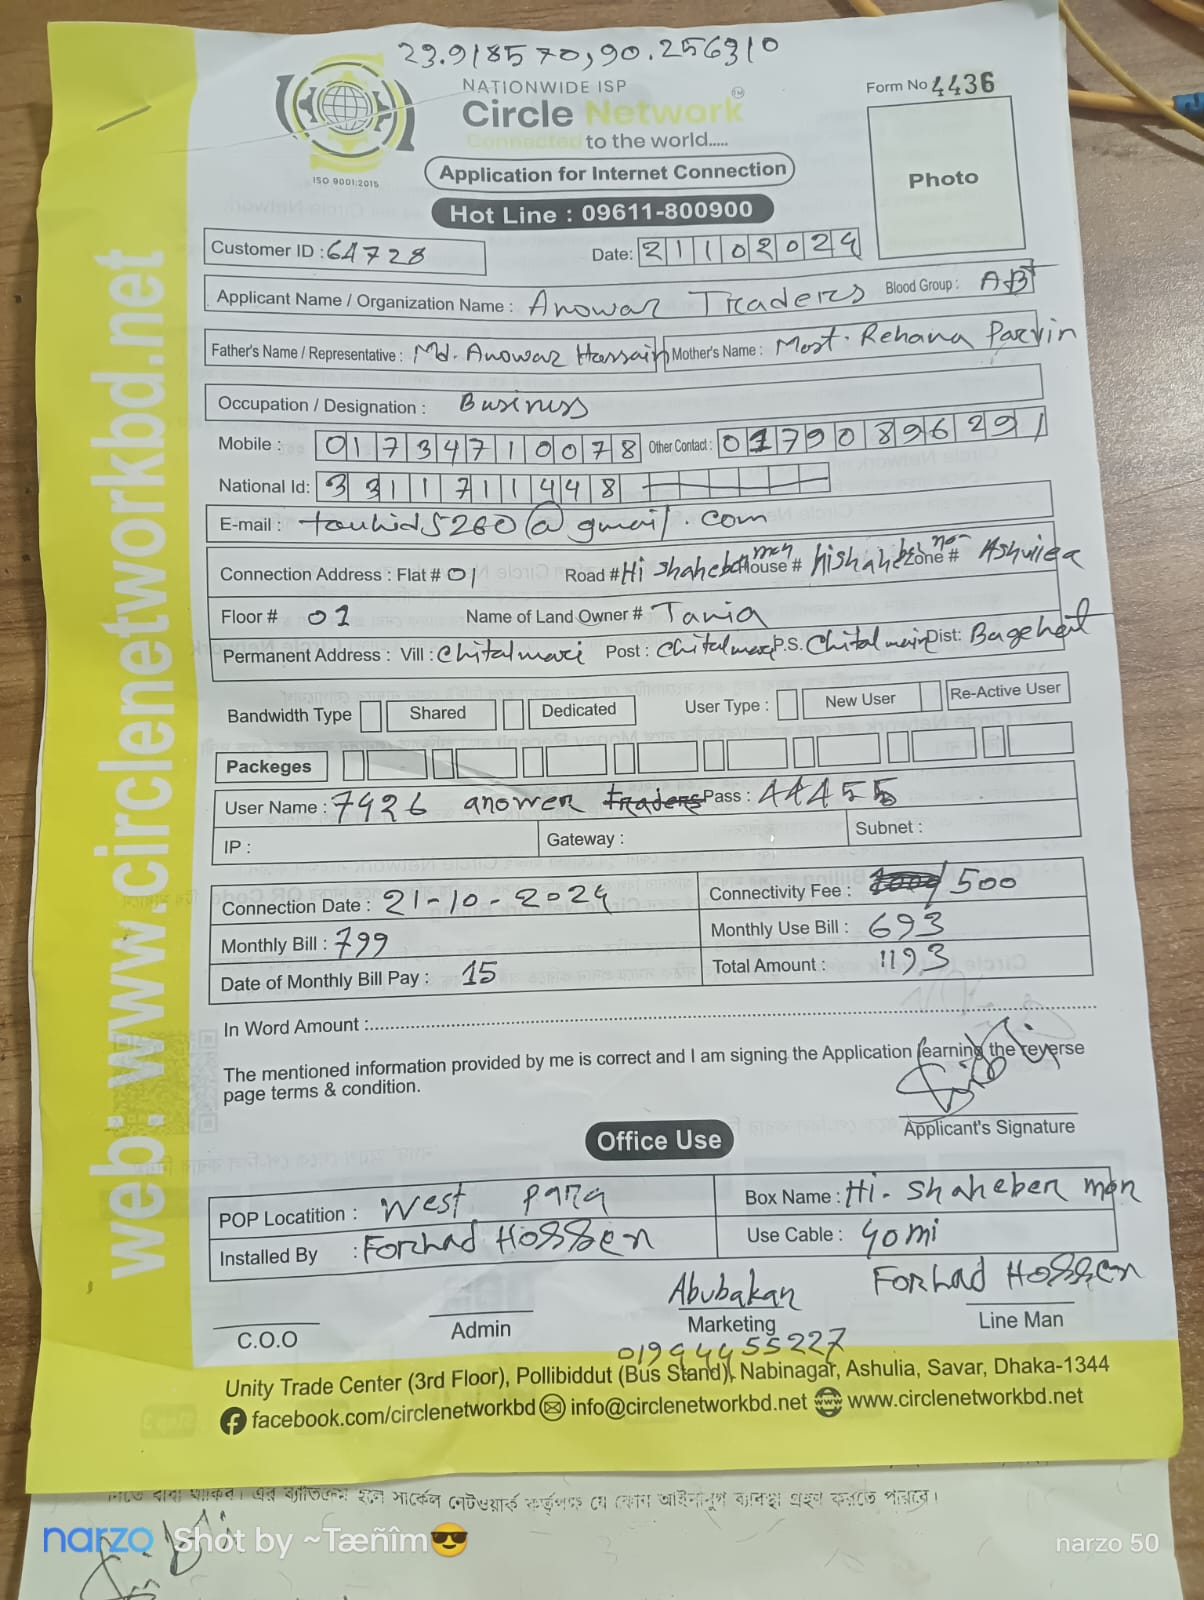 23.918570,90.256310
NATIONWIDE ISP
Circle Network
Connected to the world.....
ISO 9001:2015
Form No 4436
Photo
Application for Internet Connection
Hot Line : 09611-800900
Customer ID : 64728 Date: 21102024
Applicant Name / Organization Name : Anowar Traders Blood Group : AB+
Father's Name / Representative : Md. Anowar Hossain Mother's Name : Most. Rehana Parvin
Occupation / Designation : Business
Mobile : 01734710078 Other Contact : 01790896291
National Id: 3311711448
E-mail : touhid5260@gmail.com
Connection Address : Flat # 01 Road # Hi shaheber House # Hishaheber Zone # Ashuliea
Floor # 01 Name of Land Owner # Tania
Permanent Address : Vill : Chitalmari Post : Chitalmari P.S. Chitalmari Dist: Bagehat
Bandwidth Type Shared Dedicated User Type : New User Re-Active User
Packeges
User Name : 7926 anower traders Pass : 44455
IP : Gateway : Subnet :
Connection Date : 21-10-2024 Connectivity Fee : 500
Monthly Bill : 799 Monthly Use Bill : 693
Date of Monthly Bill Pay : 15 Total Amount : 1193
In Word Amount :
The mentioned information provided by me is correct and I am signing the Application learning the reverse
page terms & condition.
Applicant's Signature
Office Use
POP Locatition : West para Box Name : Hi. Shaheber mon
Installed By : Forhad Hossen Use Cable : 40mi
Abubakar Forhad Hossen
C.O.O Admin Marketing Line Man
01944455227
Unity Trade Center (3rd Floor), Pollibiddut (Bus Stand), Nabinagar, Ashulia, Savar, Dhaka-1344
facebook.com/circlenetworkbd info@circlenetworkbd.net www.circlenetworkbd.net
web: www.circlenetworkbd.net
এর ব্যতিক্রম হলে সার্কেল নেটওয়ার্ক কর্তৃপক্ষ যে কোন আইনানুগ ব্যবস্থা গ্রহণ করতে পারবে।
narzo Shot by ~Tæñîm😎 narzo 50